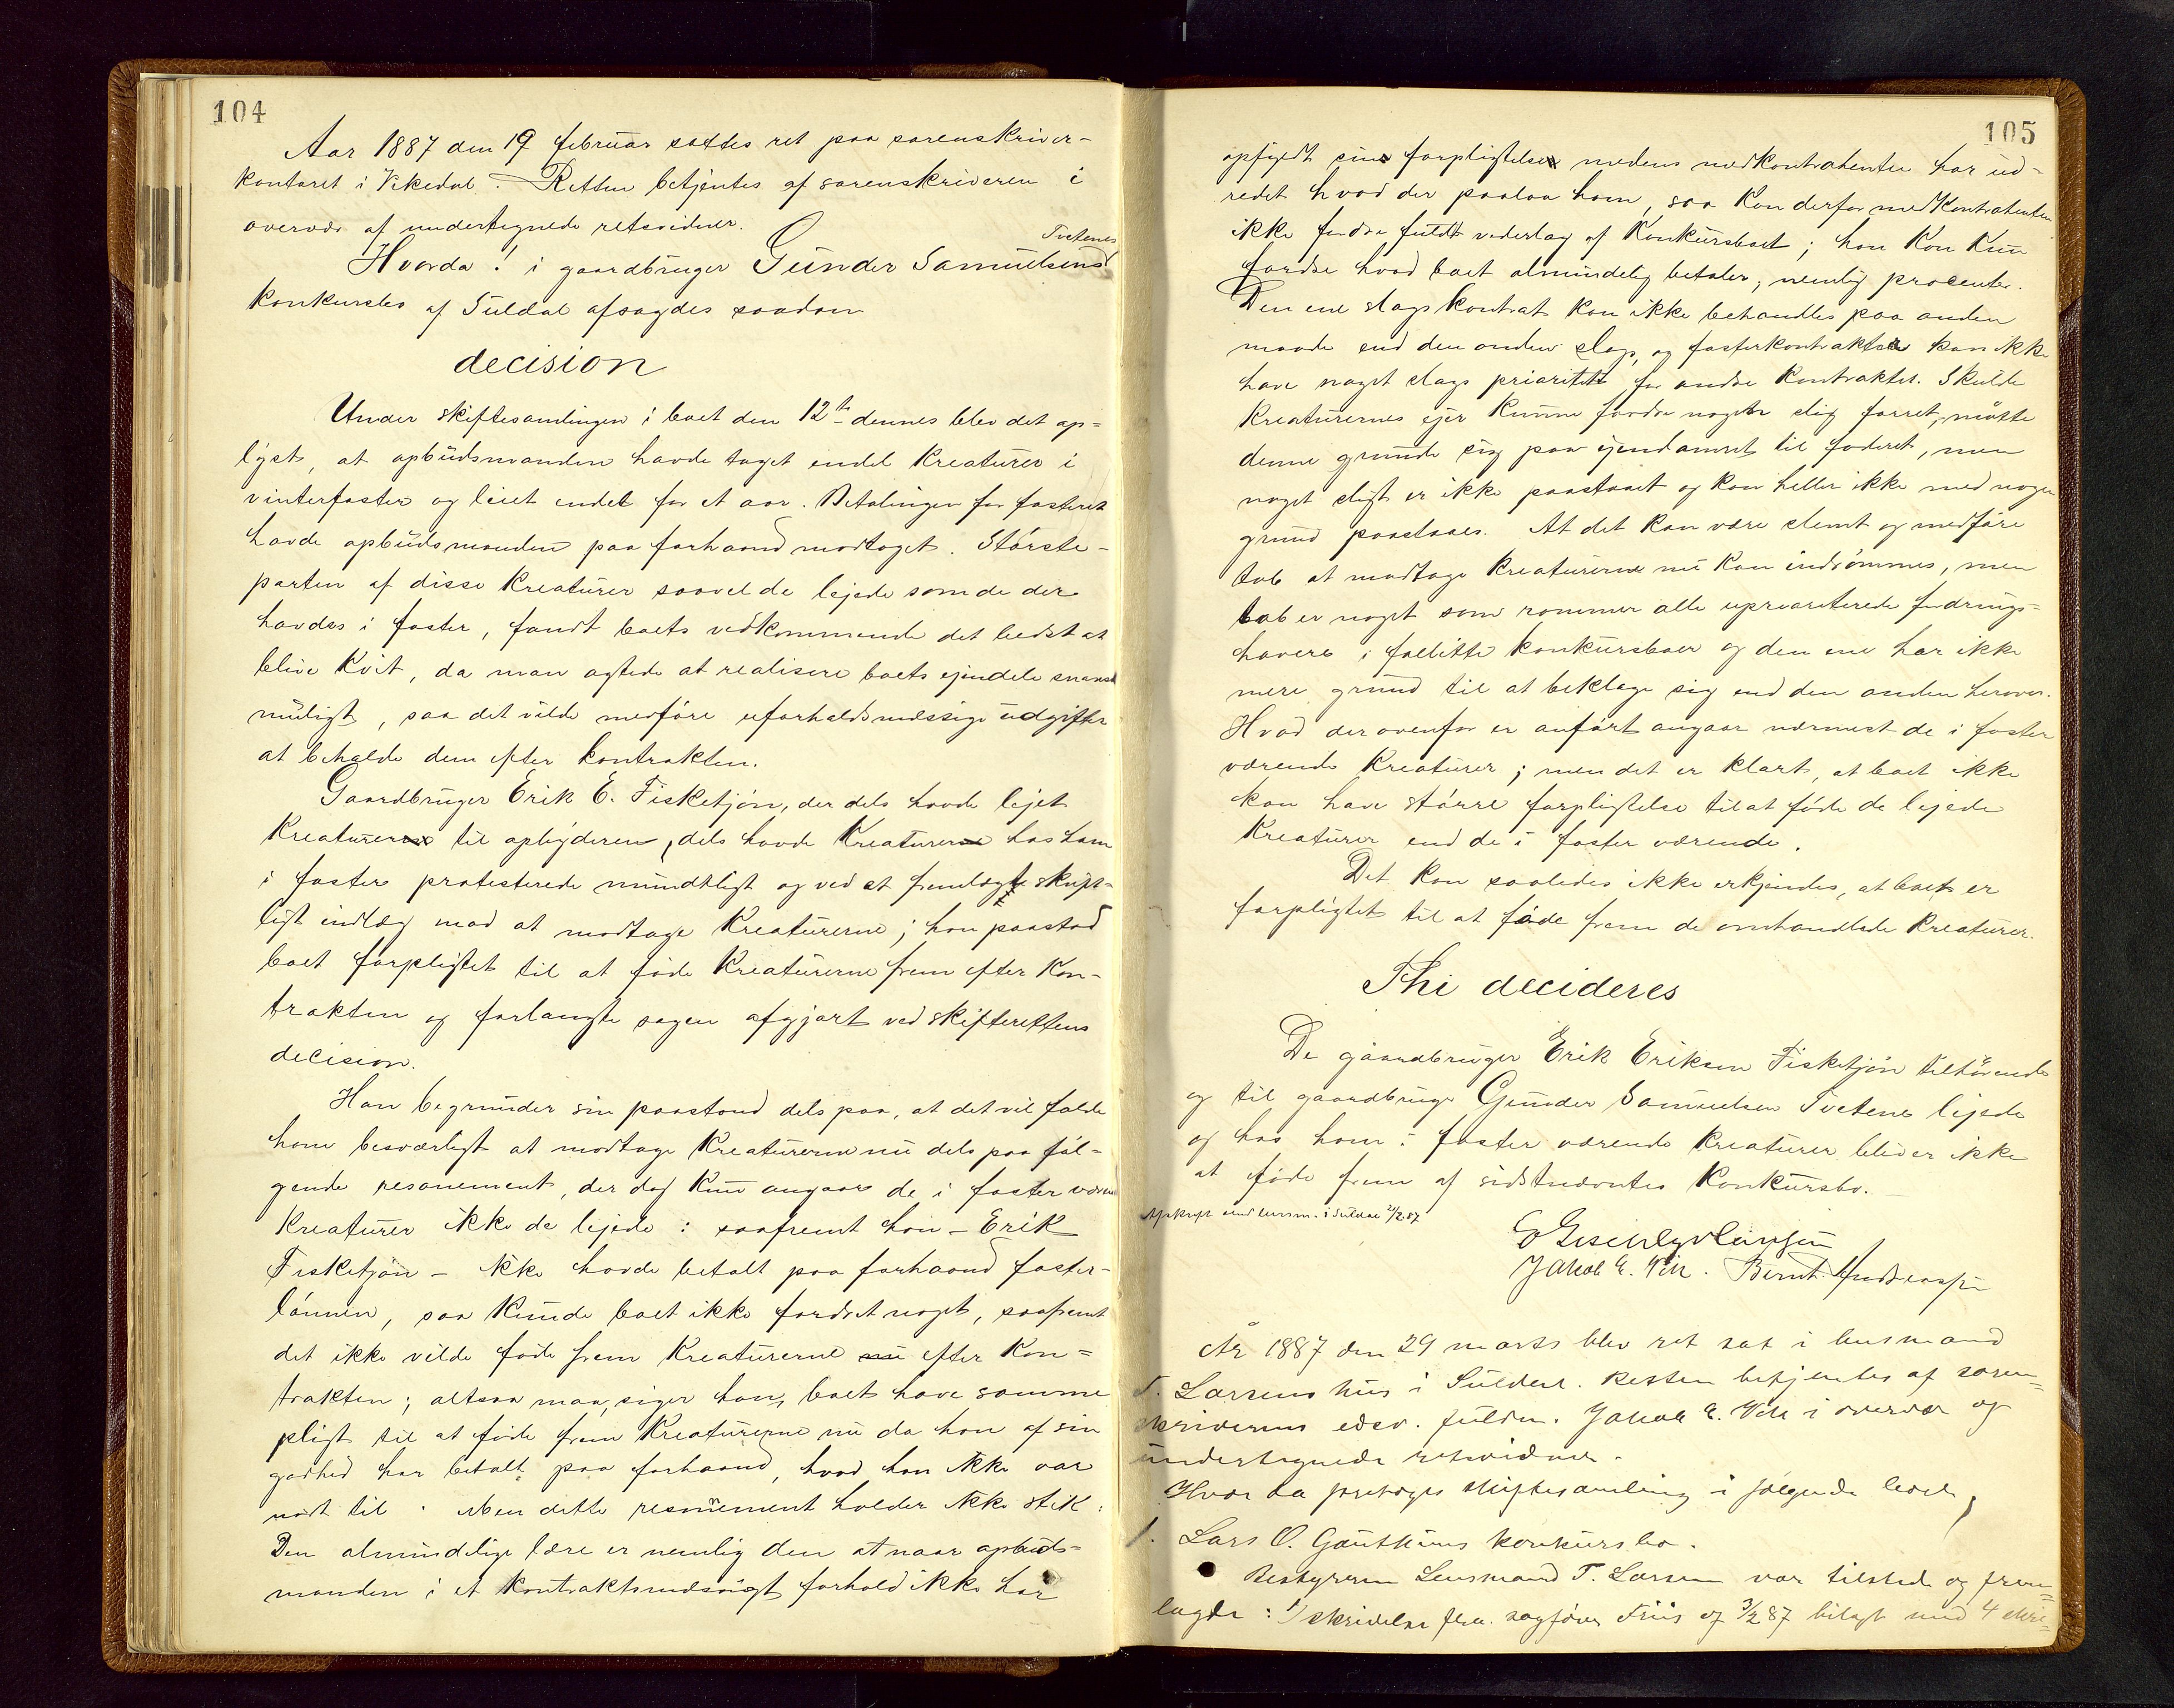 104
Aar 1887 den 19 februar sattes ret paa sorenskriver-
kontoret i Vikedal. Retten betjentes af sorenskriveren i
overvær af undertegnede retsvidner.
Tvetenes
Hvorda! i gaardbruger Gunder Samuelsens
konkursbo af Suldal afsagdes saadan
decision
Under skiftesamlingen i boet den 12te dennes blev det op=
lyst, at opbudsmanden havde taget endel Kreaturer i
vinterfoster og leiet endel for et aar. Betalingen for fosteret
havde opbudsmanden paa forhaand modtaget. Største-
parten af disse Kreaturer saavel de lejede som de der
havdes i foster, fandt boets vedkommende det bedst at
blive Kvit, da man agtede at realisere boets ejendele snarest
muligt, saa det vilde medføre uforholdsmæssige udgifter
at beholde dem efter kontrakten.
Gaardbruger Erik E. Fisketjøn, der dels havde lejet
Kreaturer til opbyderen, dels havde Kreaturer hos ham
i foster protesterede mundtligt og ved et fremlagt skrift-
ligt indlæg mod at modtage Kreaturerne; han paastod
boet forpligtet til at føde Kreaturerne frem efter Kon-
trakten og forlangte sagen afgjort ved skifterettens
decision.
Han begrunder sin paastand dels paa, at det vil falde
ham besværligt at modtage Kreaturerne nu dels paa føl-
gende resonement, der dog Kun angaar de i foster være
Kreaturer ikke de lejede: saafremt han - Erik
Fisketjøn - ikke havde betalt paa forhaand foster-
lønnen, saa Kunde boet ikke fordret noget, saafremt
det ikke vilde føde frem Kreaturerne nu efter Kon=
trakten; altsaa maa, siger han, boet have samme
pligt til at føde frem Kreaturerne nu da han af sin
godhed har betalt paa forhaand, hvad han ikke var
nødt til. Men dette resonnement holder ikke stik:
Den almindelige lære er nemlig den at naar opbuds-
manden i et kontraktsmæssigt forhold ikke har
105
opfyldt sine forpligtelser medens medkontrahenten har ud=
redet hvad der paalaa ham, saa Kan derfor medkontrahenten
ikke fordre fuldt vederlag af Konkursboet; han Kan Kun
fordre hvad boet almindelig betaler, nemlig procenter.
Den ene slags Kontrakt Kan ikke behandles paa anden
maade end den anden slags, og fosterkontrakter kan ikke
have noget slags prioritet for andre Kontrakter. Skulde
Kreaturernes ejer Kunne fordre nogen slig forret, måtte
denne grunde sig paa ejendomsret til foderet, men
noget sligt er ikke paastaaet og Kan heller ikke med nogen
grund paastaaes. At det Kan være slemt og medføre
tab at modtage Kreaturerne nu Kan indrømmes, men
tab er noget som rammer alle uprioriterede fordrings=
havere i fallitte konkursboer og den ene har ikke
mere grund til at beklage sig end den anden herover.
Hvad der ovenfor er anført angaar nærmest de i foster
værende Kreaturer; men det er klart, at boet ikke
kan have større forpligtelse til at føde de lejede
Kreaturer end de i foster værende.
Det Kan saaledes ikke erkjendes, at boet er
forpligtet til at føde frem de omhandlede Kreaturer.
Thi decideres
De gaardbruger Erik Eriksen Fisketjøn tilhørende
og til gaardbruger Gunder Samuelsen Tvetene lejede
og hos ham i foster værende Kreaturer bliver ikke
at føde frem af sidstnævntes Konkursbo.-
Afskrift lensm. i Suldal 21/2 87
Jakob E. Vik. Bernt Andreasen
År 1887 den 29 marts blev ret sat i lensmand
T. Larsens hus i Suldal. Retten betjentes af soren=
skriverens edsv. fuldm. Jakob E. Vik i overvær og
undertegnede retsvidner.
Hvor da foretoges skiftesamling i følgende boer,
1. Lars O. Gauthuns konkursbo.
Bestyreren Lensmand T. Larsen var tilstede og frem=
lagde: 1/ skrivelse fra sagfører Friis af 3/2 87 bilagt med 4 skri=